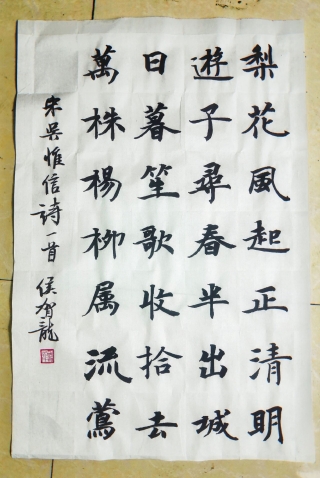 梨花風起正清明
遊子尋春半出城
日暮笙歌收拾去
萬株楊柳属流鶯
宋吳惟信詩一首 侯賀龍